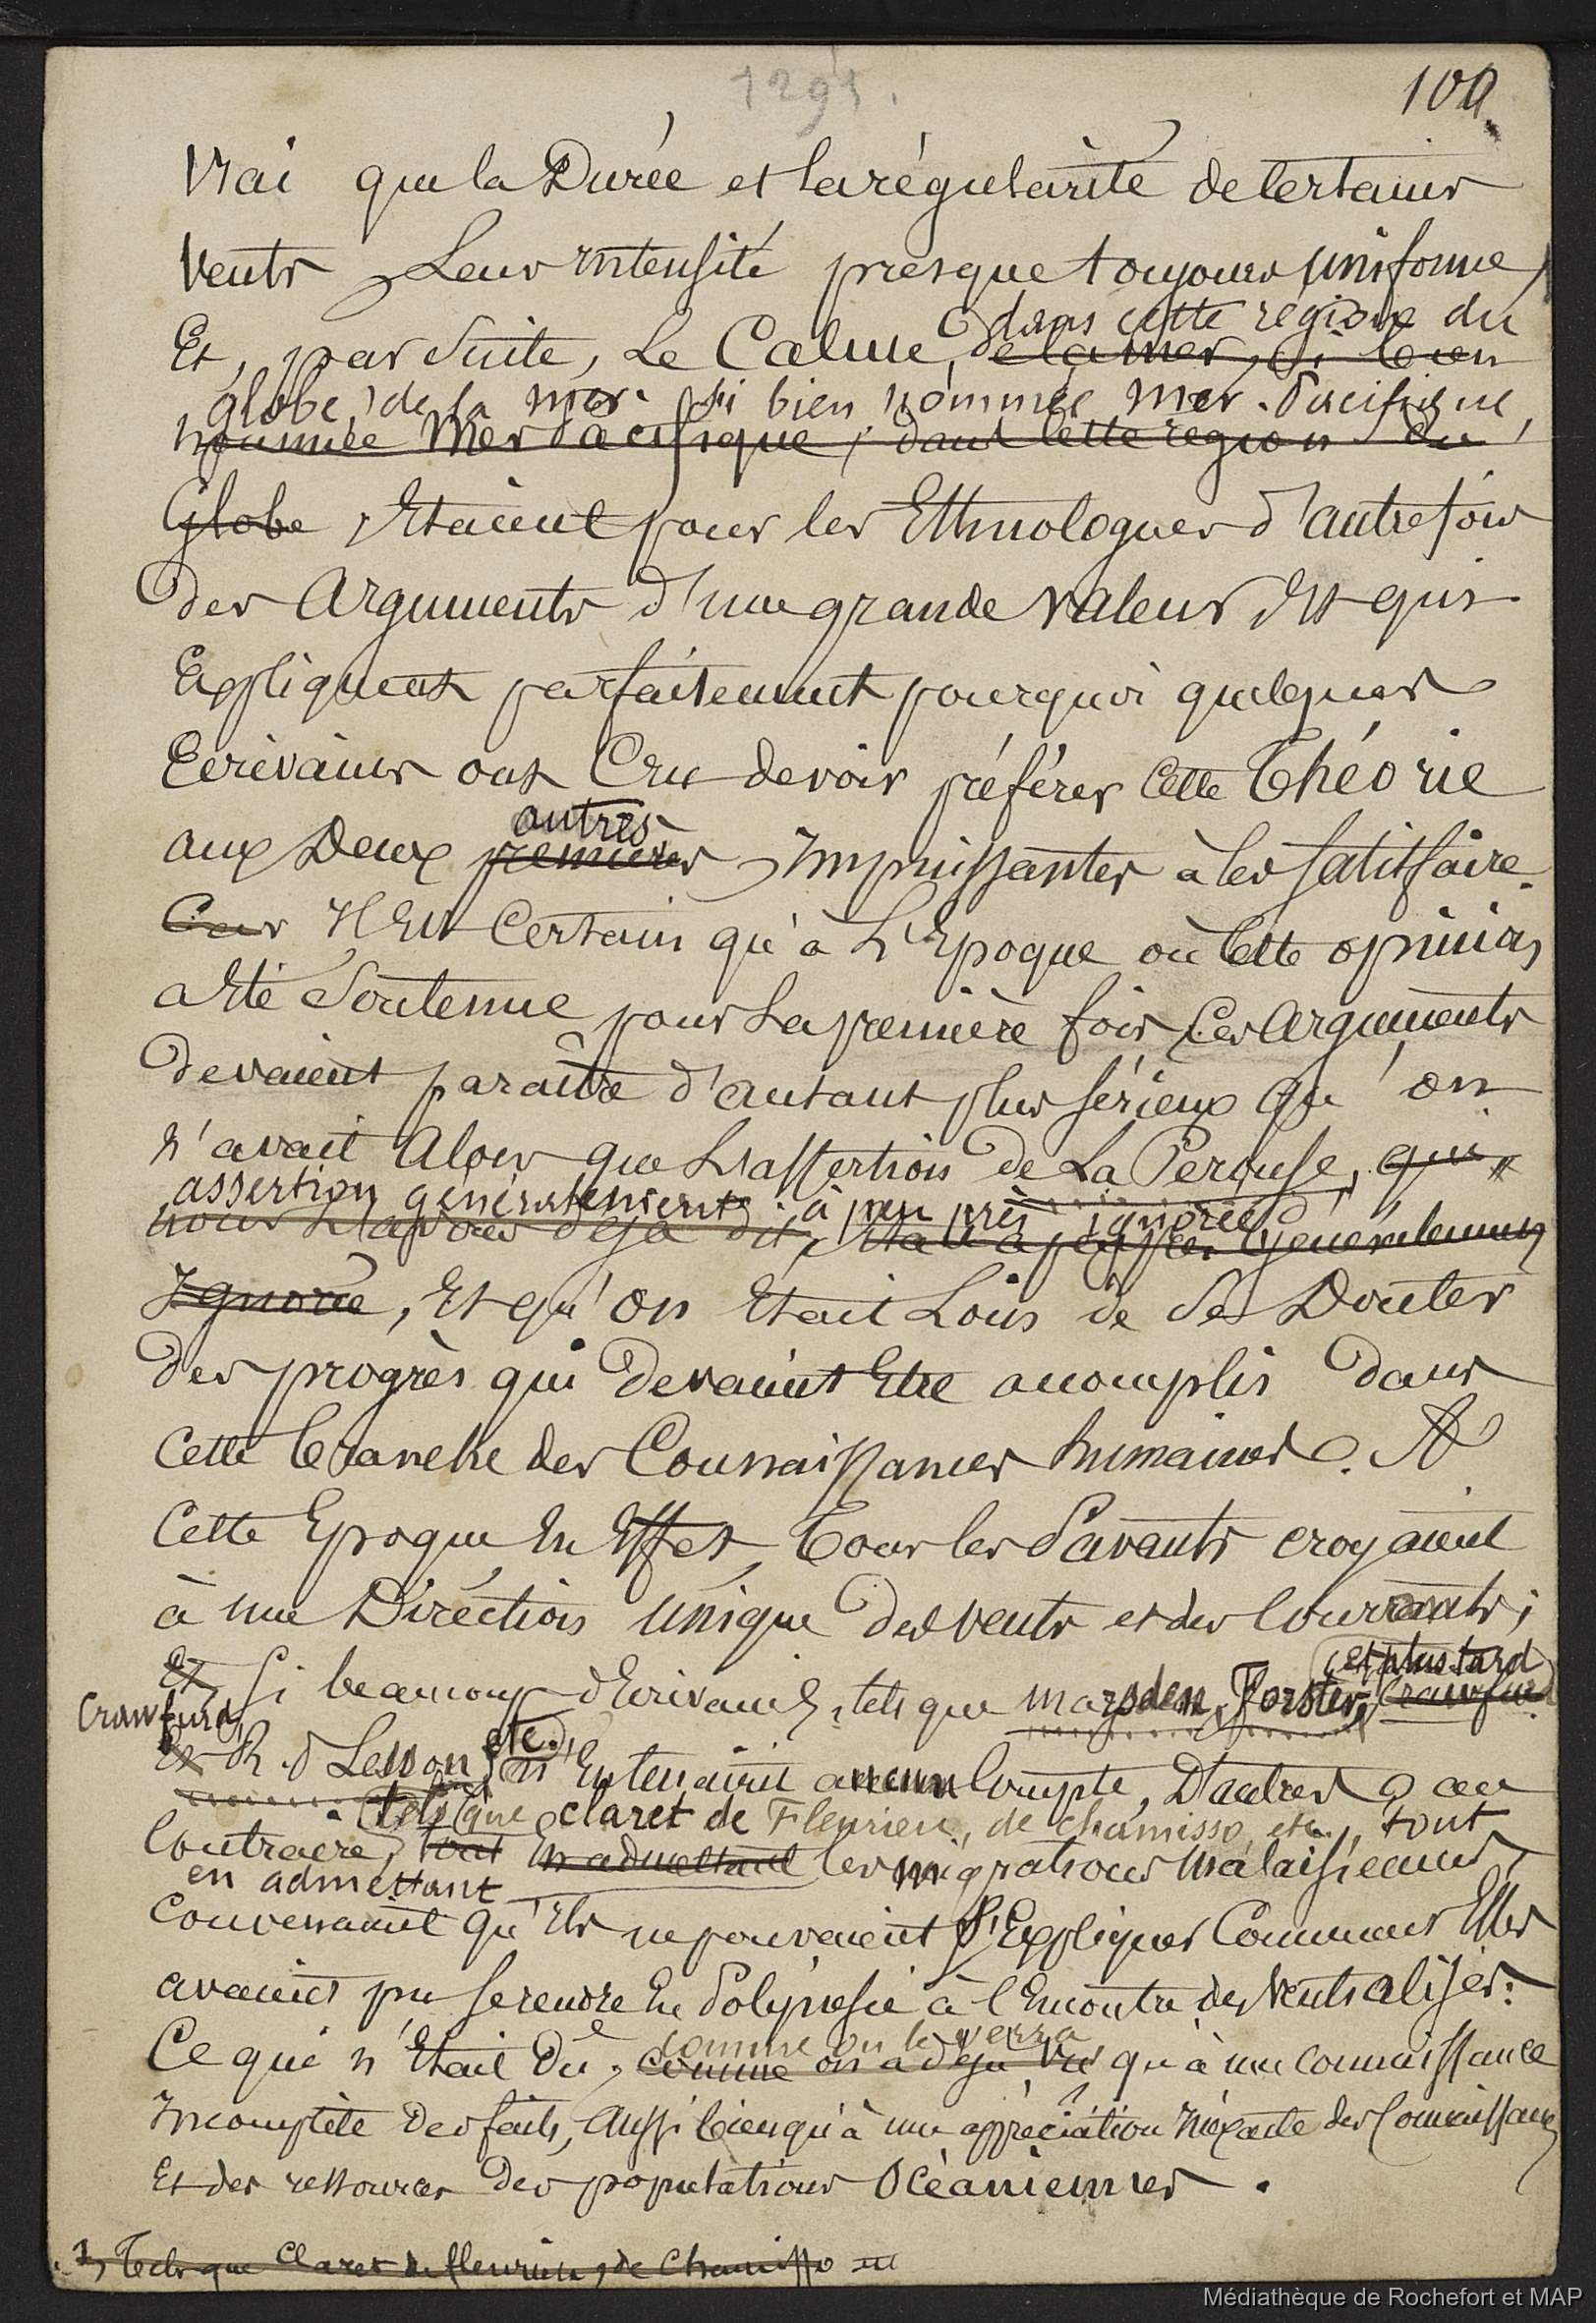 1291.
100
Vrai que la Durée et la régularité de Certains
Vents, Leur intensité presque toujours uniforme,
dans cette région du
Et, par Suite, Le Calme de la mer, si bien
globe, de la mer si bien nommée mer Pacifique,
nommée Mer Pacifique, dans cette région du
Globe Etaient pour les Ethnologues d'autrefois
Des Arguments d'une grande valeur Et qui
Expliquent parfaitement pourquoi quelques
Ecrivains ont Cru devoir préférer Cette Théorie
autres
aux Deux premières, Impuissantes à les satisfaire.
Car Il Est Certain qu'à L'Epoque où Cette opinion
a Eté Soutenue pour La première fois Ces Arguments
Devaient paraître d'autant plus sérieux qu'on
n'avait Alors que L'assertion de La Perouse, qui
assertion généralement à peu près ignorée
nous l'avons déjà dit, Etait à peu près Généralement
Ignorée, Et qu'on Etait Loin de Se Douter
Des progrès qui Devaient Etre accomplis Dans
Cette branche des Connaissances humaines. A
Cette Epoque En Effet, Tous les Savants croyaient
à une Direction Unique des vents et des Courrants;
et plus tard
Et Si beaucoup d'Ecrivains, tels que Marsden, Forster, Crawfurd
Crawfurd
Et R. P. Lesson etc. n'En tenaient aucun Compte, D'autres, au
tels que Claret de Fleurieu, de Chamisso, etc., tout
Contraire, tout En admettant les migrations Malaisiennes,
en admettant
Convenaient qu'Ils ne pouvaient S'Expliquer Comment Elles
avaient pu se rendre En Polynésie à l'Encontre des Vents alisés:
comme on le verra
Ce qui n'Etait Dû, comme on a déjà vu qu'à une Connaissance
Incomplète Des faits, Aussi bien qu'à une appréciation Inexacte des Connaissances
Et des ressources Des populations Océaniennes.
1, Tels que Claret de fleurieu, de Chamisso
Médiathèque de Rochefort et MAP